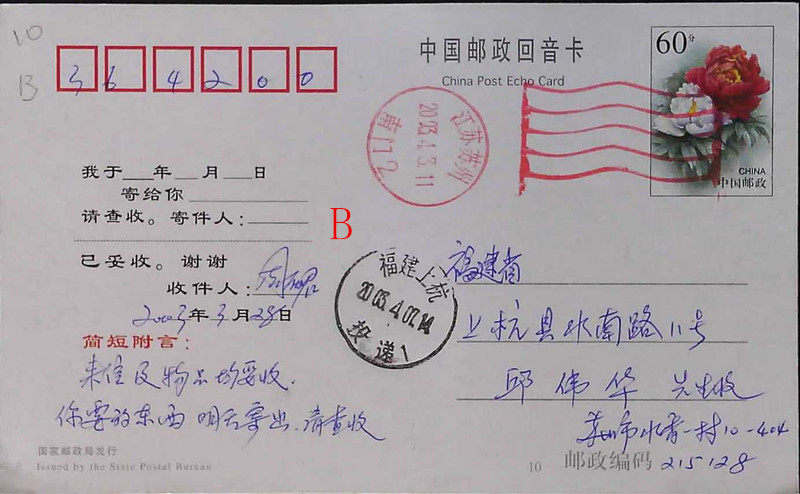 10
B
364200
中国邮政回音卡
China Post Echo Card
60分
CHINA
中国邮政
江苏苏州
2003.4.3.11
南门2
我于___年__月__日
寄给你
请查收。寄件人：
B
已妥收。谢谢
收件人：
2003年3月28日
简短附言：
来信及物品均妥收.
你要的东西明后寄出.请查收
福建上杭
2003.4.07.14
投递1
福建省
上杭县水南路11号
邱伟华先生收
苏州市水香一村10-404
国家邮政局发行
Issued by the State Postal Bureau
10
邮政编码 215128